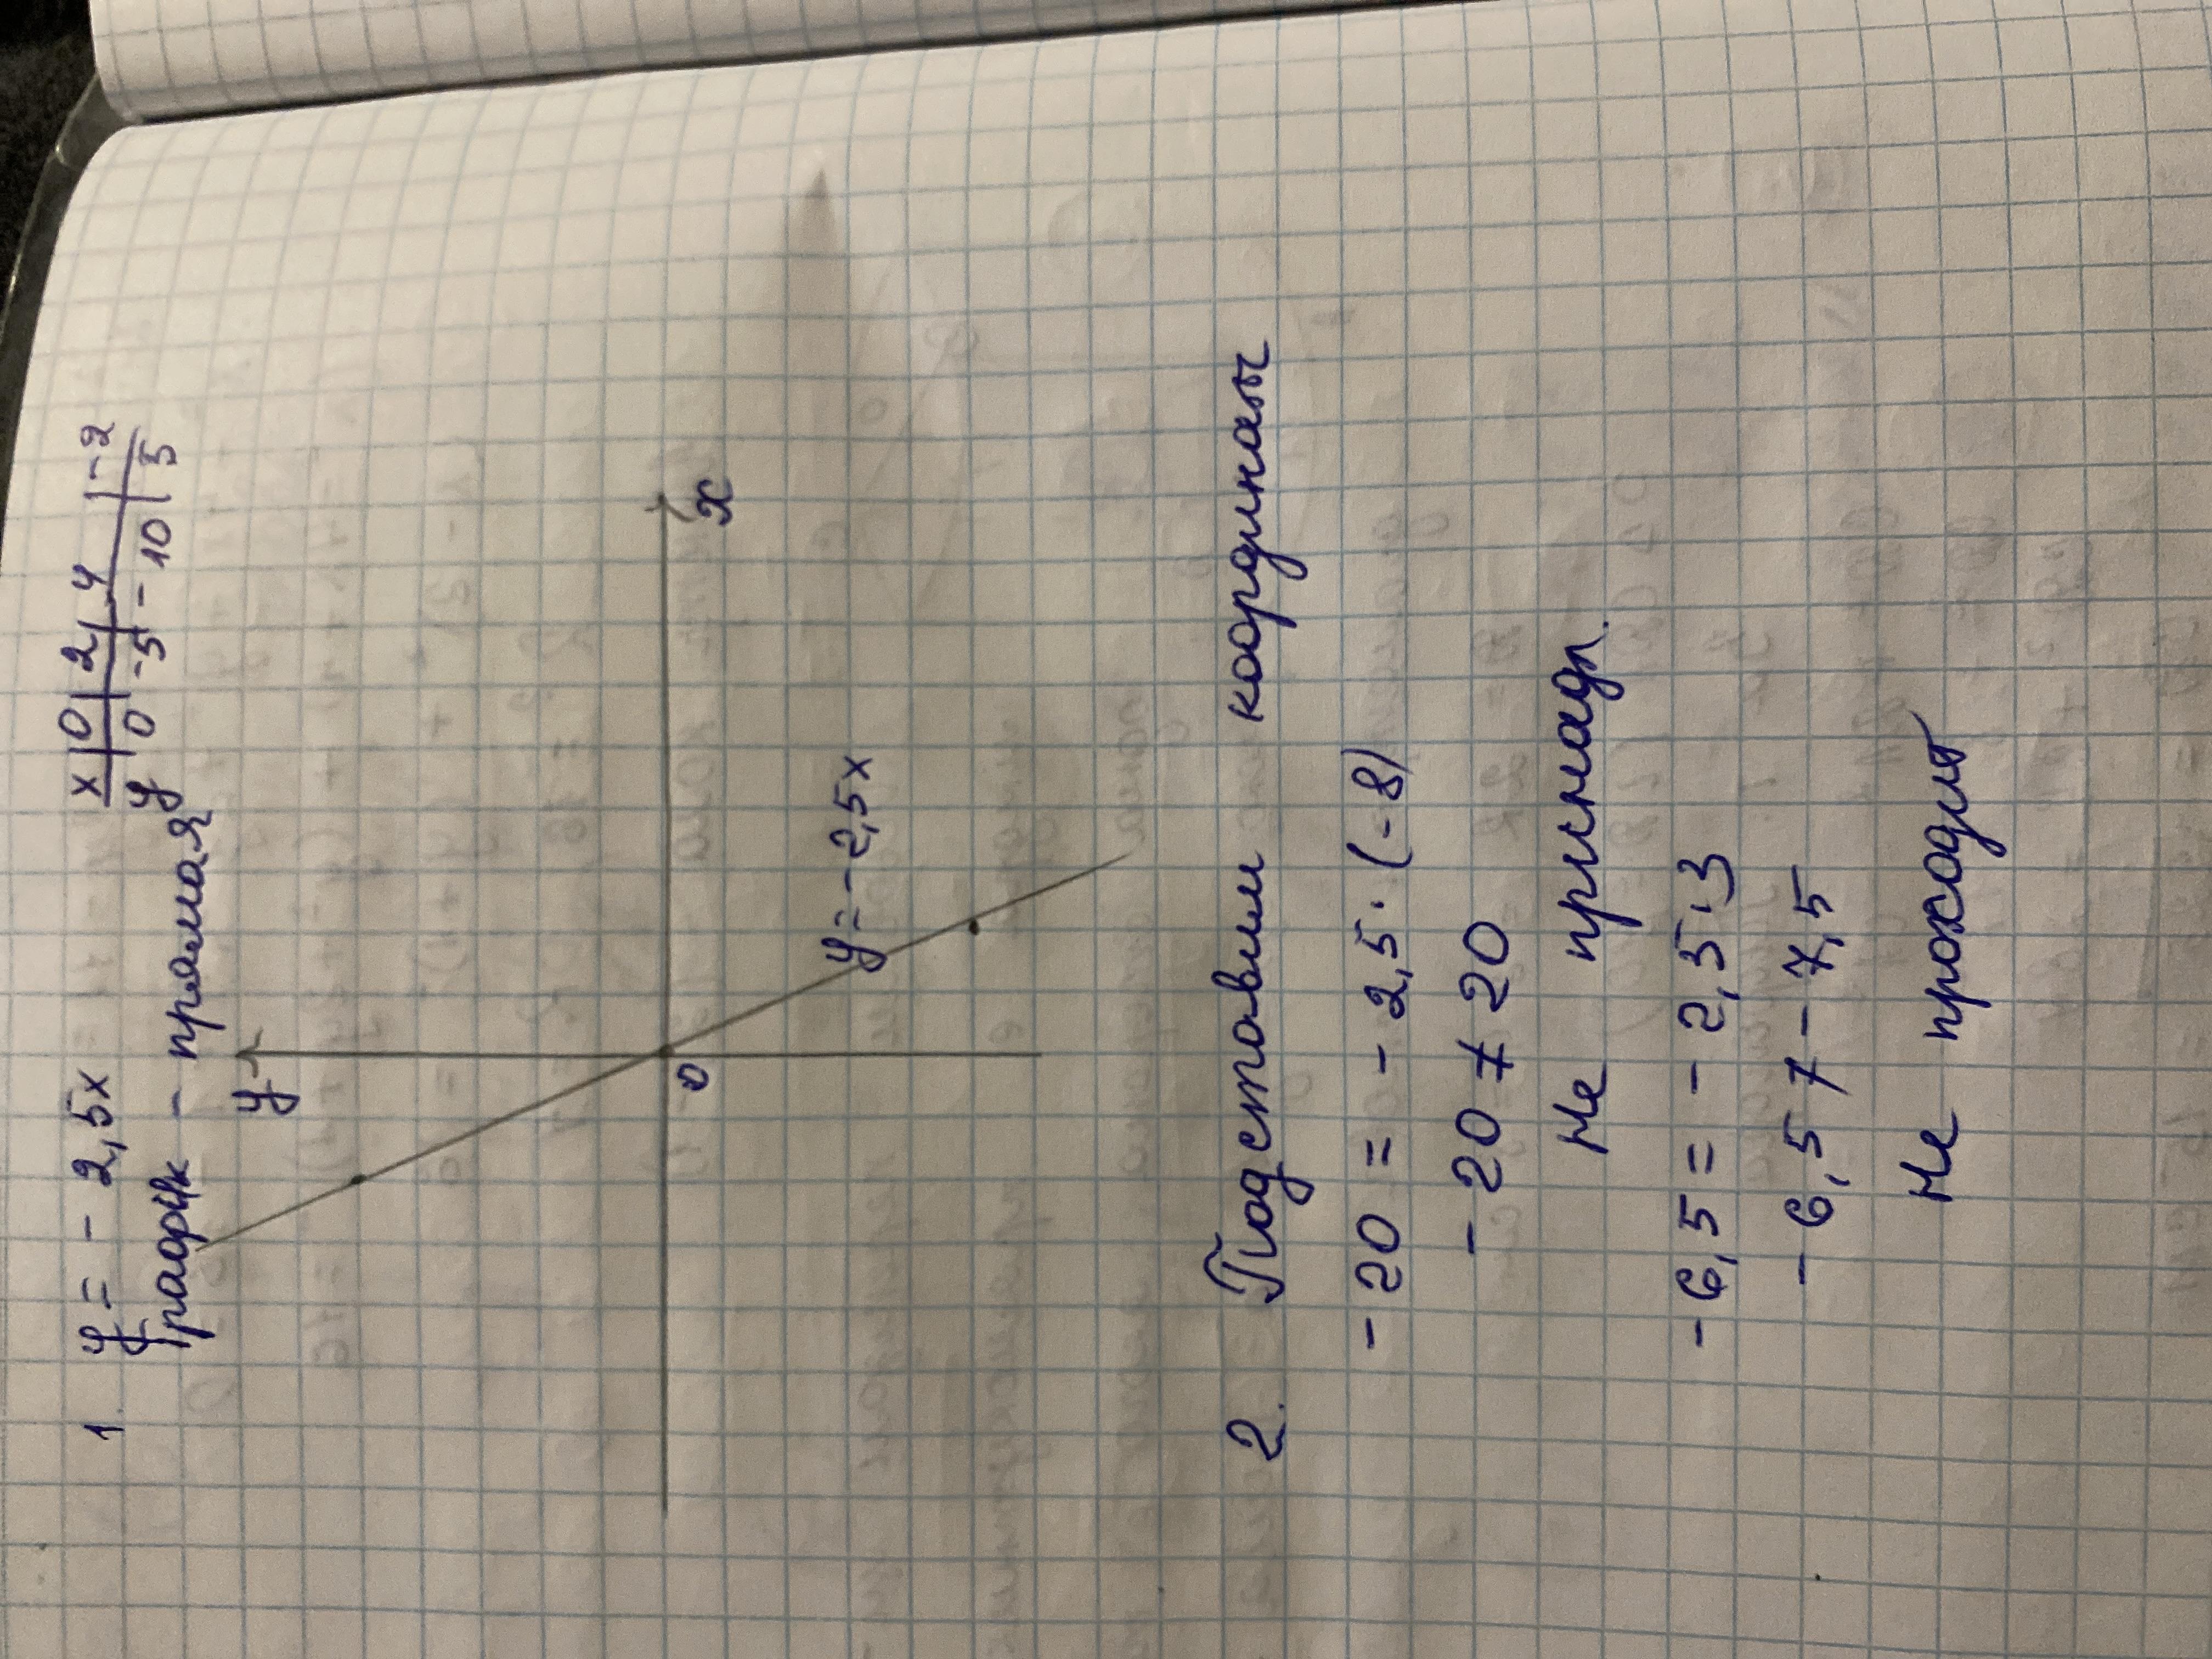 1. y = - 2,5x
x | 0 | 2 | 4 | -2
y 0 -5 -10 | 5
График - прямая
y
0
x
y = -2,5x
2. Подставим координаы
- 20 = - 2,5 · (-8)
- 20 ≠ 20
Не принадл.
- 6,5 = - 2,5 · 3
- 6,5 ≠ - 7,5
Не проходит